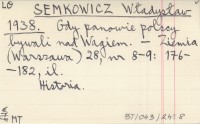 LG SEMKOWICZ Władysław
1938. Gdy panowie polscy
bywali nad Wagiem. — Ziemia
(Warszawa) 28, nr 8-9: 176-
-182, il.
Historia.
MT
BT/043/24:8